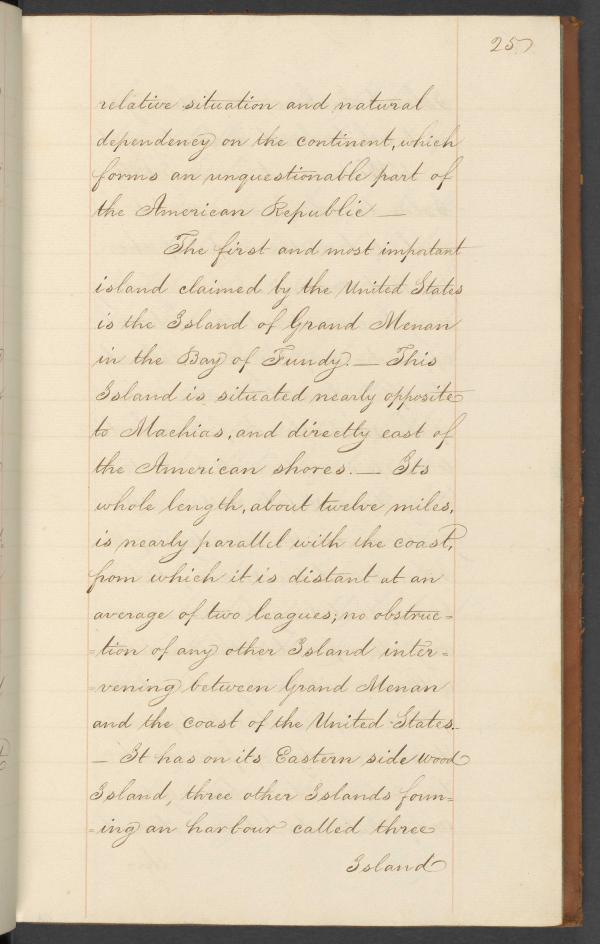 257
relative situation and natural
dependency on the continent, which
forms an unquestionable part of
the American Republic —
The first and most important
island claimed by the United States
is the Island of Grand Menan
in the Bay of Fundy. — This
Island is situated nearly opposite
to Machias, and directly east of
the American shores. — Its
whole length, about twelve miles,
is nearly parallel with the coast,
from which it is distant at an
average of two leagues; no obstruc=
=tion of any other Island inter=
=vening between Grand Menan
and the coast of the United States.
— It has on its Eastern side Wood
Island, three other Islands form=
=ing an harbour called three
Island